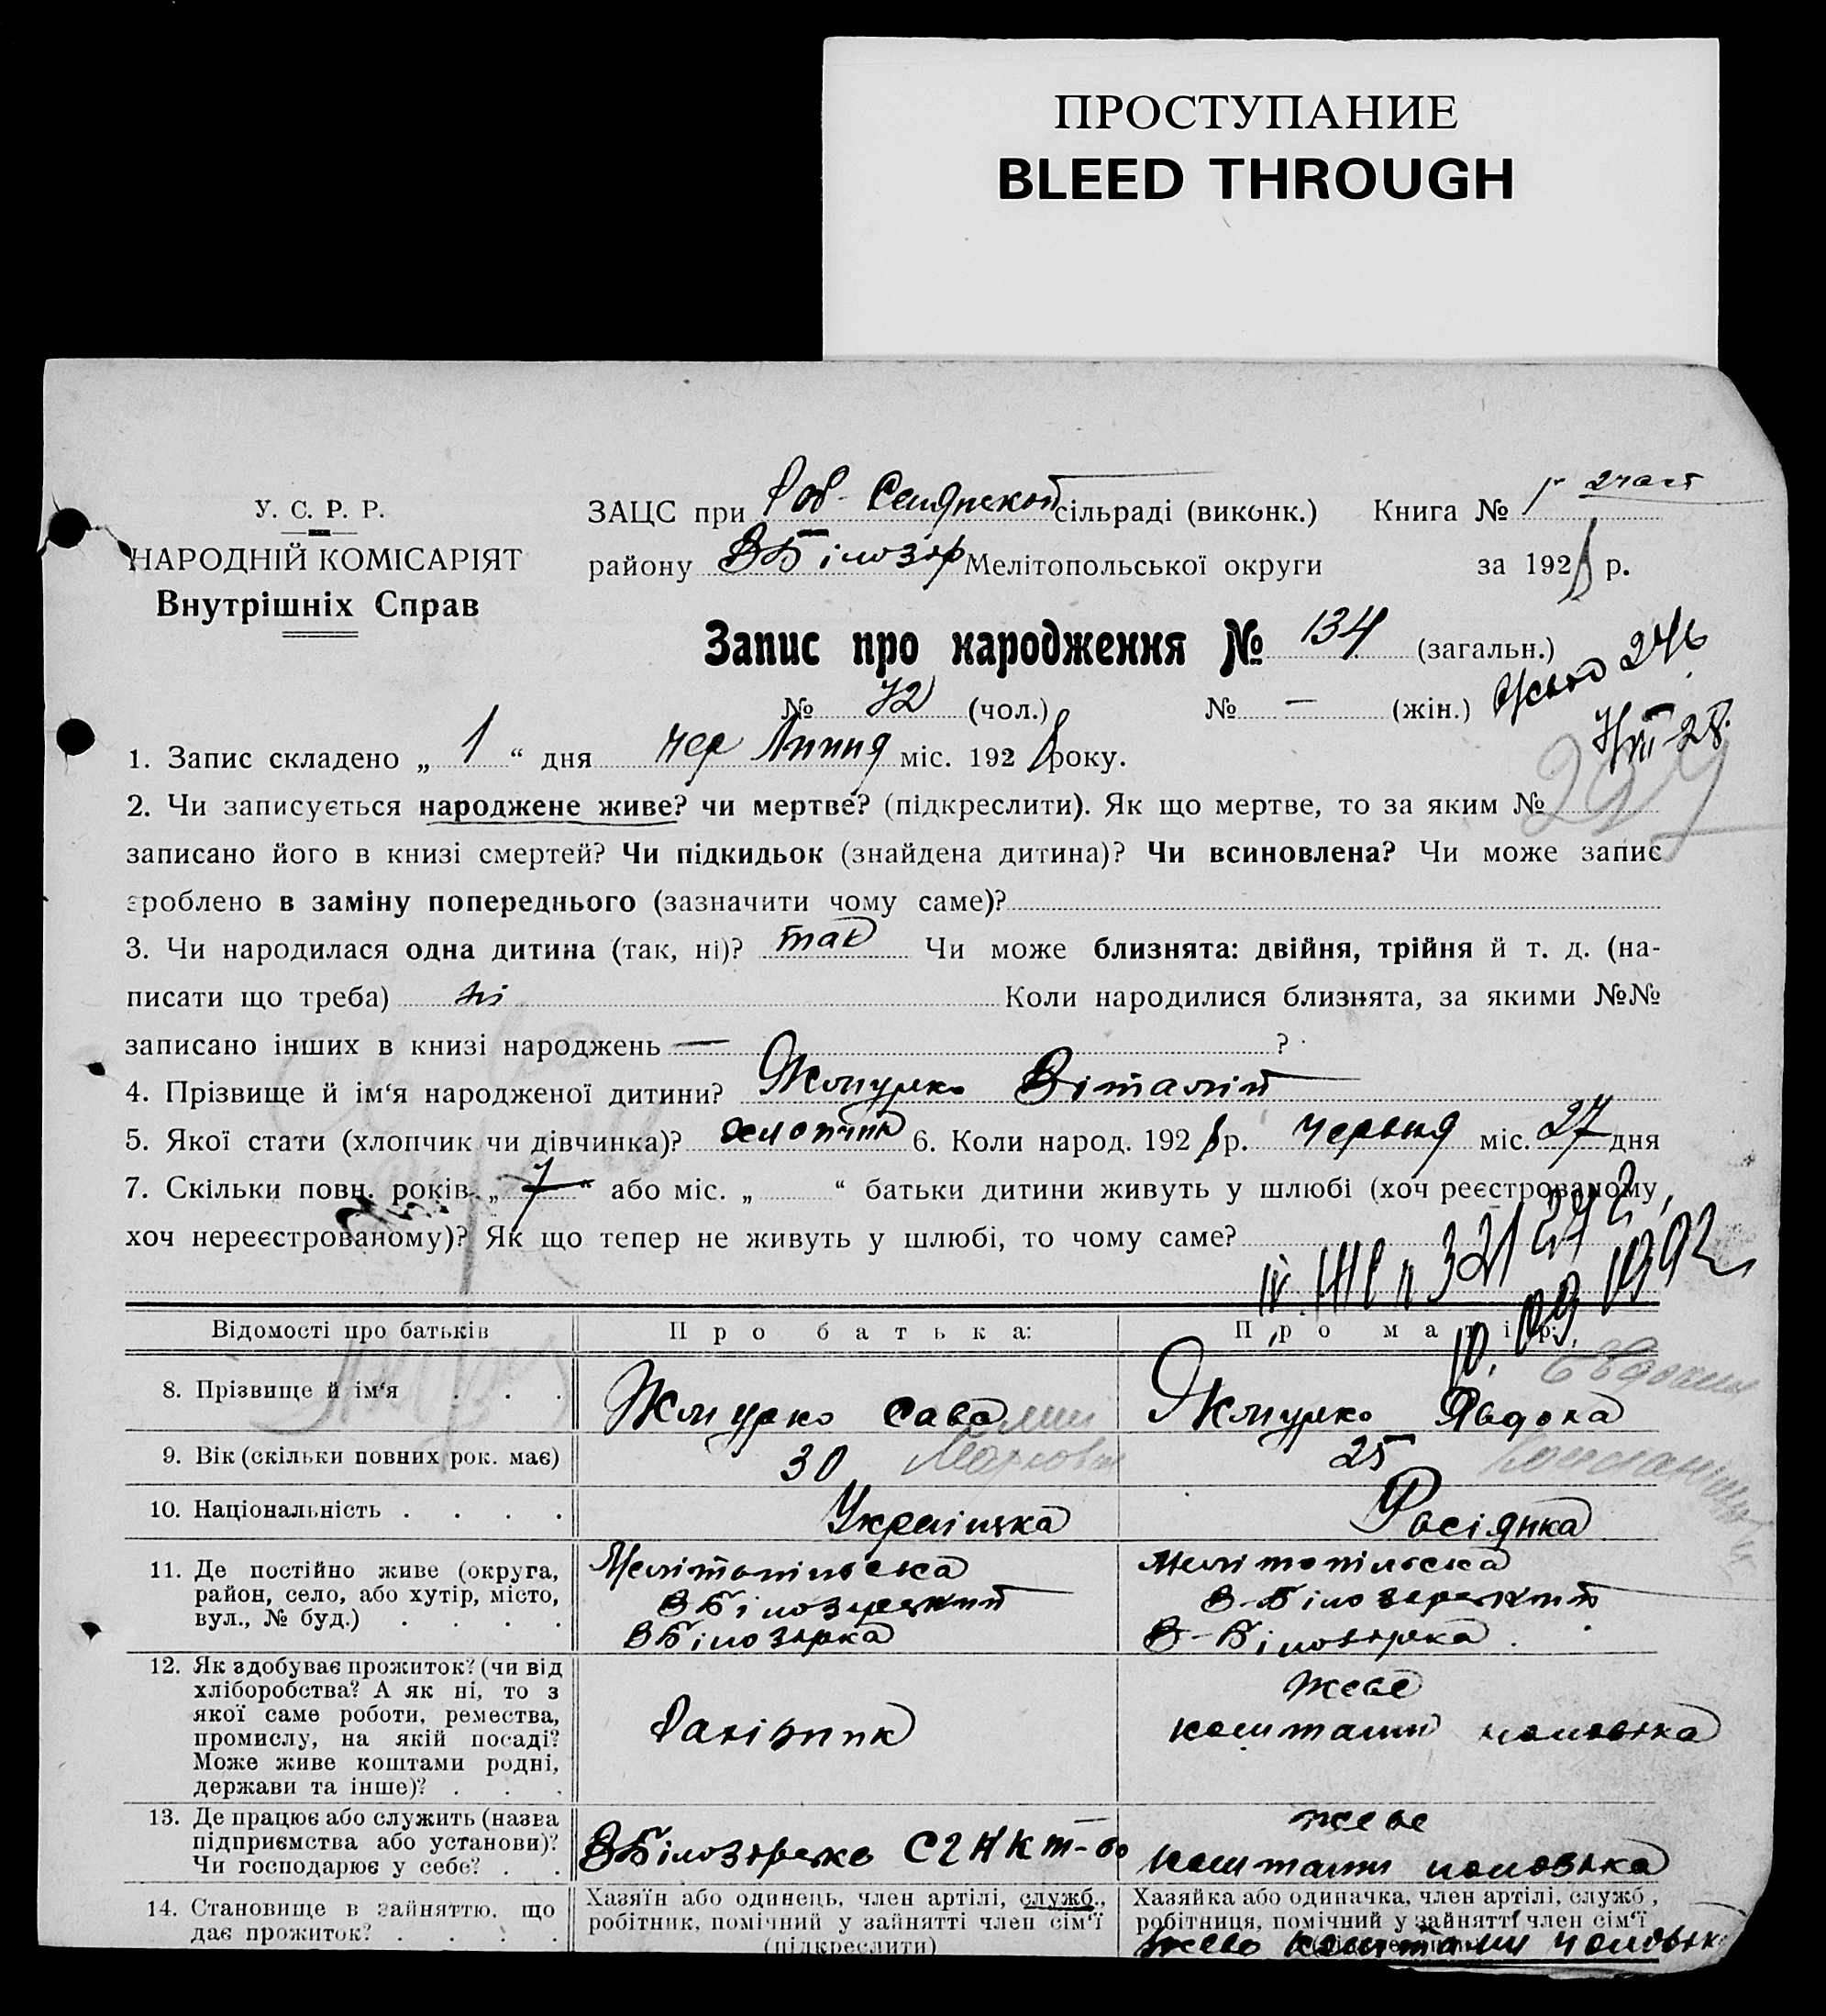 ПРОСТУПАНИЕ
BLEED THROUGH
У. С. Р. Р.
НАРОДНІЙ КОМІСАРІЯТ
Внутрішніх Справ
ЗАЦС при Роб- сільраді (виконк.) Книга № 1
району ВБілозер Мелітопольської округи за 1928 р.
Запис про народження № 134 (загальн.)
№ 72 (чол.) № — (жін.)
246
VII-28.
1. Запис складено „ 1 “ дня чер Липня міс. 1928 року.
2. Чи записується народжене живе? чи мертве? (підкреслити). Як що мертве, то за яким №
записано його в книзі смертей? Чи підкидьок (знайдена дитина)? Чи всиновлена? Чи може запис
зроблено в заміну попереднього (зазначити чому саме)?
3. Чи народилася одна дитина (так, ні)? так Чи може близнята: двійня, трійня й т. д. (на-
писати що треба) ні Коли народилися близнята, за якими №№
записано інших в книзі народжень — ?
4. Прізвище й ім‘я народженої дитини? Жмурко Віталій
5. Якої стати (хлопчик чи дівчинка)? хлопчик 6. Коли народ. 1928 р. червня міс. 27 дня
7. Скільки повн. років „ 7 “ або міс. „ “ батьки дитини живуть у шлюбі (хоч реєстрованому,
хоч нереєстрованому)? Як що тепер не живуть у шлюбі, то чому саме?
10.09.1992
Відомості про батьків Про батька: Про матір:
8. Прізвище й ім‘я . . . Жмурко Сава Жмурко Явдока
9. Вік (скільки повних рок. має) 30 25
10. Національність . . . . Українка Росіянка
11. Де постійно живе (округа, район, село, або хутір, місто, вул., № буд.) . . . .
Мелітопільська Мелітопільська
ВБілозерський В-Білозерський
ВБілозерка В-Білозерка
12. Як здобуває прожиток? (чи від хліборобства? А як ні, то з якої саме роботи, ремества, промислу, на якій посаді? Може живе коштами родні, держави та інше)? . . .
живе
коштами чоловіка
13. Де працює або служить (назва підприємства або установи)? Чи господарює у себе? . .
ВБілозерське живе
коштами чоловіка
14. Становище в зайняттю, що дає прожиток? . . . .
Хазяїн або одинець, член артілі, служб., робітник, помічний у зайнятті член сім‘ї (підкреслити)
Хазяйка або одиначка, член артілі, служб., робітниця, помічний у зайнятті член сім‘ї
живе коштами чоловіка